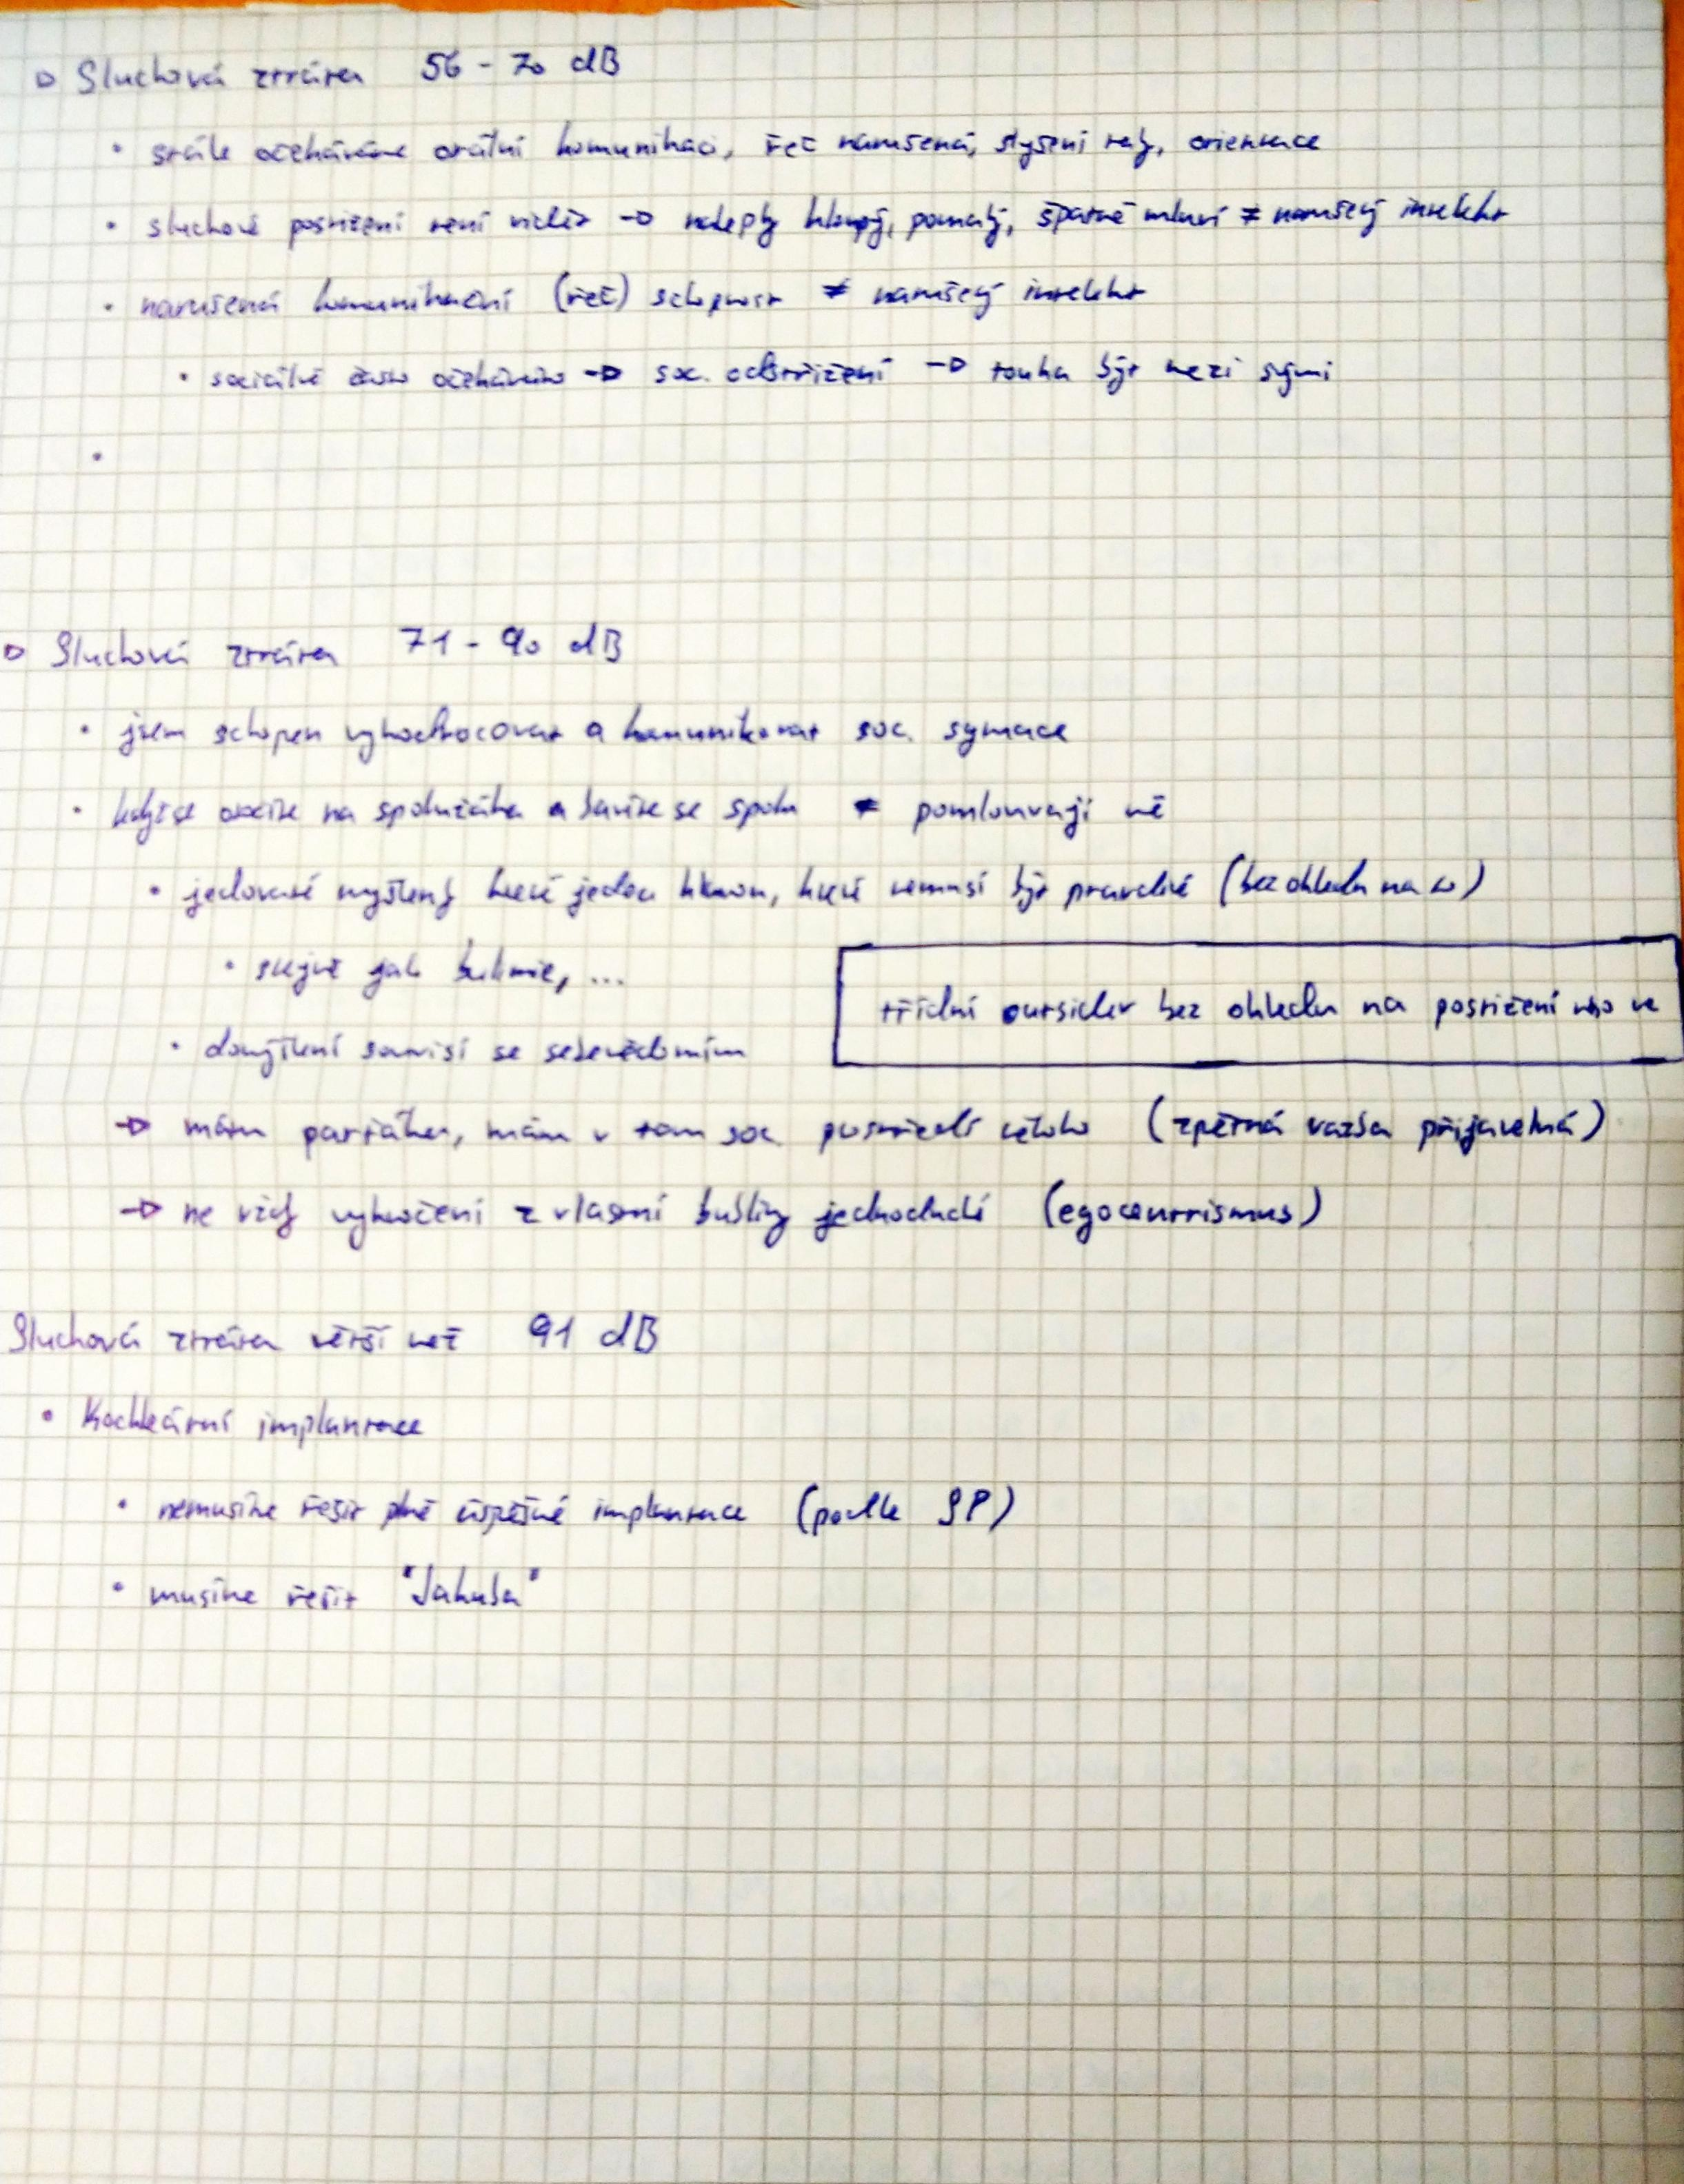 Sluchová ztráta 56 - 70 dB
• stále očekáváme orální komunikaci, řeč narušená, slyšení rady, orientace
• sluchové postižení není vidět → nálepky hloupý, pomalý, špatně mluví ≠ narušený intelekt
• narušená komunikační (řeč) schopnost ≠ narušený intelekt
• sociálně často očekáváno → soc. odstřižení → touha být mezi svými
•
Sluchová ztráta 71 - 90 dB
• jsem schopen vyhodnocovat a komunikovat soc. symace
• když se otočíte na spolužáka a bavíte se spolu ≠ pomlouvají mě
• jedovaté myšlenky které jedou hlavou, které nemusí být pravdivé (bez ohledu na to)
• stejně jak bulimie, ...
třídní outsider bez ohledu na postižení nebo ne
• domýšlení souvisí se sebevědomím
→ mám parťáka, mám v tom soc. postižení někoho (zpětná vazba přijatelná)
→ ne vždy vykročení z vlastní bubliny jednoduché (egocentrismus)
Sluchová ztráta větší než 91 dB
• Kochleární implantace
• nemusíme řešit plně úspěšné implantace (podle SP)
• musíme řešit "Jakuba"